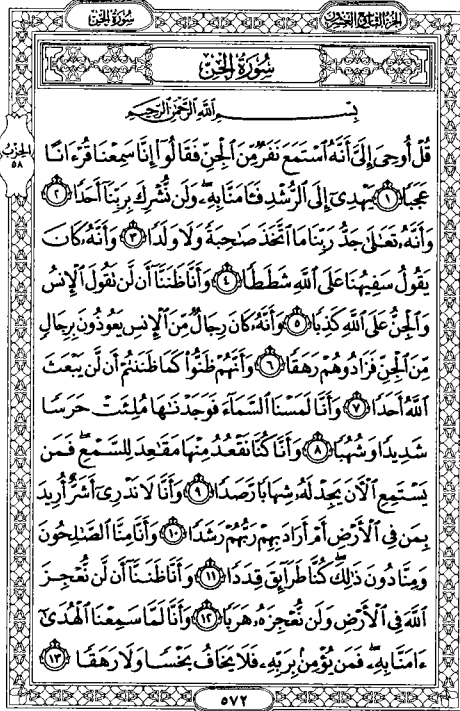 سُورَةُ الجِنّ
الجُزْءُ التَّاسِعُ وَالعِشْرُونَ
سُورَةُ الجِنّ
بِسْمِ اللَّهِ الرَّحْمَٰنِ الرَّحِيمِ
الحِزْبُ
٥٨
قُلْ أُوحِىَ إِلَىَّ أَنَّهُ ٱسْتَمَعَ نَفَرٌ مِّنَ ٱلْجِنِّ فَقَالُوٓا۟ إِنَّا سَمِعْنَا قُرْءَانًا
عَجَبًا ١ يَهْدِىٓ إِلَى ٱلرُّشْدِ فَـَٔامَنَّا بِهِۦ ۖ وَلَن نُّشْرِكَ بِرَبِّنَآ أَحَدًا ٢
وَأَنَّهُۥ تَعَٰلَىٰ جَدُّ رَبِّنَا مَا ٱتَّخَذَ صَٰحِبَةً وَلَا وَلَدًا ٣ وَأَنَّهُۥ كَانَ
يَقُولُ سَفِيهُنَا عَلَى ٱللَّهِ شَطَطًا ٤ وَأَنَّا ظَنَنَّآ أَن لَّن تَقُولَ ٱلْإِنسُ
وَٱلْجِنُّ عَلَى ٱللَّهِ كَذِبًا ٥ وَأَنَّهُۥ كَانَ رِجَالٌ مِّنَ ٱلْإِنسِ يَعُوذُونَ بِرِجَالٍ
مِّنَ ٱلْجِنِّ فَزَادُوهُمْ رَهَقًا ٦ وَأَنَّهُمْ ظَنُّوا۟ كَمَا ظَنَنتُمْ أَن لَّن يَبْعَثَ
ٱللَّهُ أَحَدًا ٧ وَأَنَّا لَمَسْنَا ٱلسَّمَآءَ فَوَجَدْنَٰهَا مُلِئَتْ حَرَسًا
شَدِيدًا وَشُهُبًا ٨ وَأَنَّا كُنَّا نَقْعُدُ مِنْهَا مَقَٰعِدَ لِلسَّمْعِ ۖ فَمَن
يَسْتَمِعِ ٱلْـَٔانَ يَجِدْ لَهُۥ شِهَابًا رَّصَدًا ٩ وَأَنَّا لَا نَدْرِىٓ أَشَرٌّ أُرِيدَ
بِمَن فِى ٱلْأَرْضِ أَمْ أَرَادَ بِهِمْ رَبُّهُمْ رَشَدًا ١٠ وَأَنَّا مِنَّا ٱلصَّٰلِحُونَ
وَمِنَّا دُونَ ذَٰلِكَ ۖ كُنَّا طَرَآئِقَ قِدَدًا ١١ وَأَنَّا ظَنَنَّآ أَن لَّن نُّعْجِزَ
ٱللَّهَ فِى ٱلْأَرْضِ وَلَن نُّعْجِزَهُۥ هَرَبًا ١٢ وَأَنَّا لَمَّا سَمِعْنَا ٱلْهُدَىٰٓ
ءَامَنَّا بِهِۦ ۖ فَمَن يُؤْمِنۢ بِرَبِّهِۦ فَلَا يَخَافُ بَخْسًا وَلَا رَهَقًا ١٣
٥٧٢